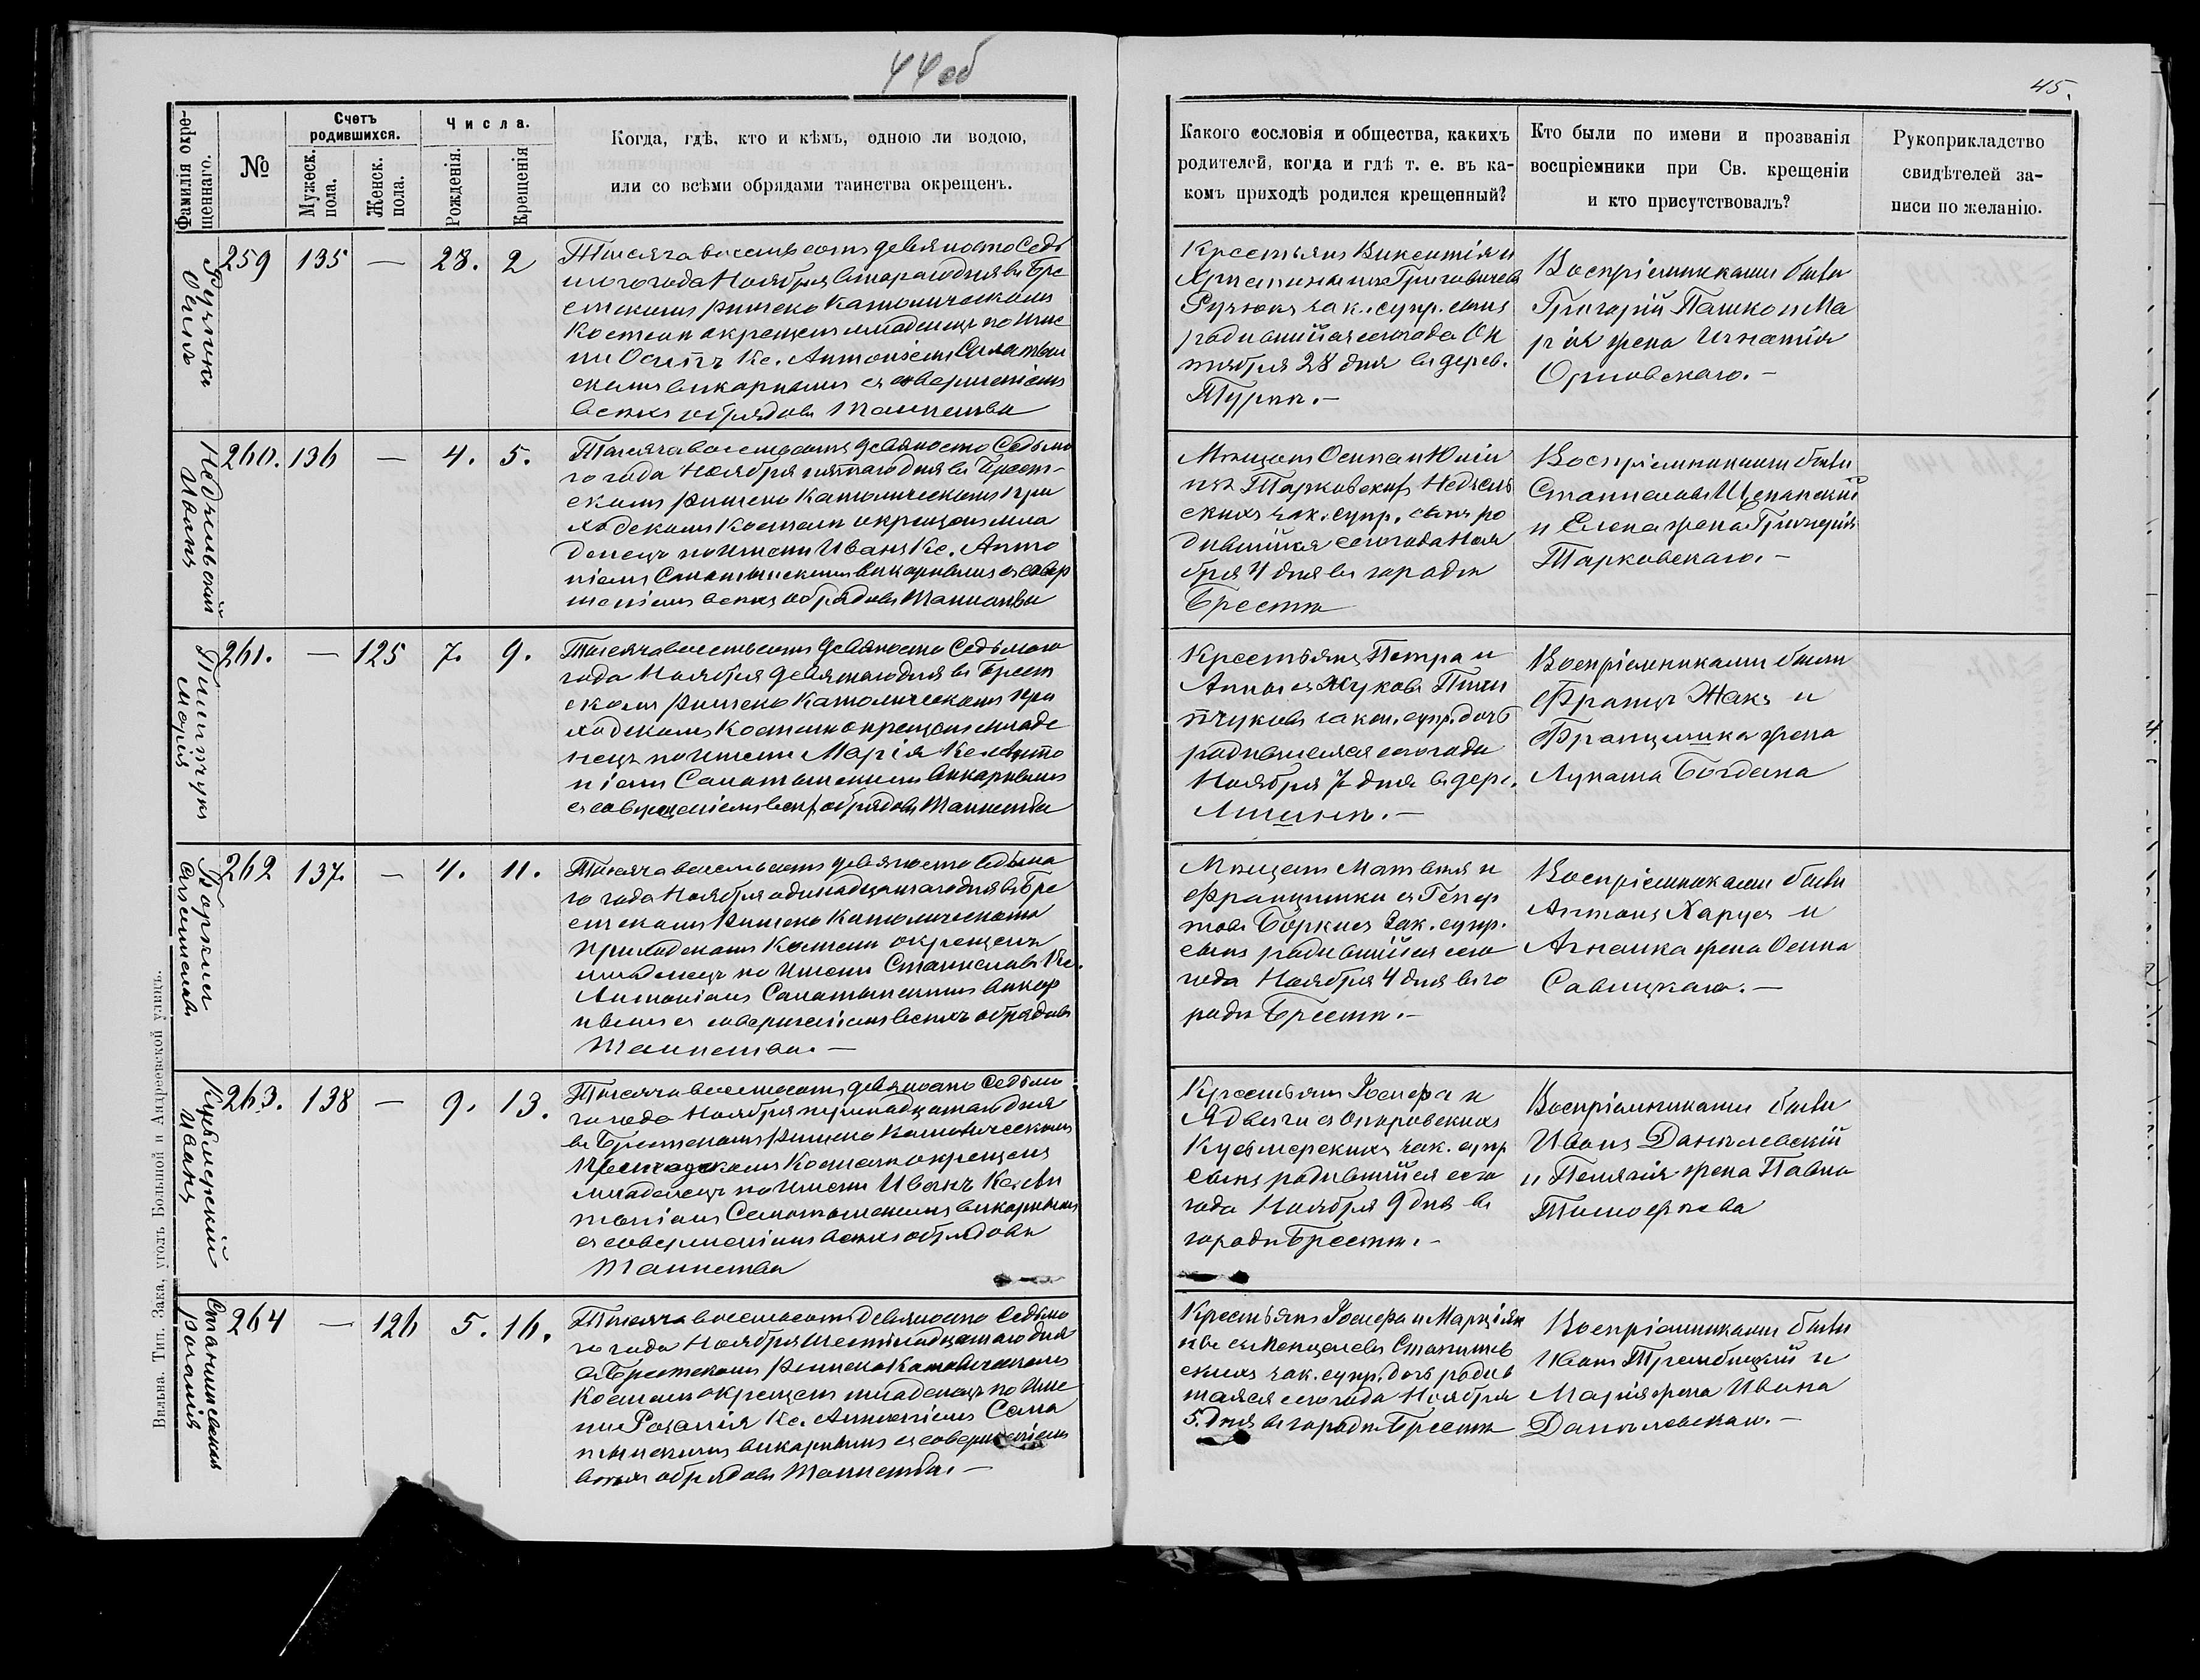 44об
45.
Фамилія окрещеннаго.
№
Счетъ родившихся.
Мужеск. пола.
Женск. пола.
Числа.
Рожденія.
Крещенія
Когда, гдѣ, кто и кѣмъ, одною ли водою,
или со всѣми обрядами таинства окрещенъ.
Какого сословія и общества, какихъ
родителей, когда и гдѣ т. е. въ ка-
комъ приходѣ родился крещенный?
Кто были по имени и прозванія
воспріемники при Св. крещеніи
и кто присутствовалъ?
Рукоприкладство
свидѣтелей за-
писи по желанію.
Осипъ
259 135 — 28. 2
Тысяча восемьсотъ девяносто седь
мого года Ноября втораго дня въ Бре
стскомъ Римско Католическомъ
Костелѣ окрещенъ младенецъ по име
ни Осипъ Кс. Антоніемъ
викарнымъ съ совершеніемъ
всѣхъ обрядовъ Таинства
Крестьянъ Викентія и
сынъ
родившійся сего года Ок
тября 28 дня въ дерев.
Воспріемниками были
Григорій Пашко и Ма
рія жена Игнатія
Орловскаго.—
Недзельскій
Иванъ
260. 136 — 4. 5.
Тысяча восемьсотъ девяносто Седьмо
го года Ноября пятаго дня въ Брест-
скомъ Римско Католическомъ При
ходскомъ Костелѣ окрещенъ мла
денецъ по имени Иванъ Кс. Анто
ніемъ викарнымъ съ совер
шеніемъ всѣхъ обрядовъ Таинства
Мѣщанъ Осипа и Юлiи
изъ Тарковскихъ Недзель
скихъ зак. супр. сынъ ро
дившійся сего года Ноя
бря 4 дня въ городѣ
Брестѣ
Воспріемниками были
Станиславъ
и Елена жена Григорія
Тарковскаго.—
Марія
261. — 125 7. 9.
Тысяча восемьсотъ девяносто Седьмого
года Ноября девятаго дня въ Брест
скомъ Римско Католическомъ При
ходскомъ Костелѣ окрещенъ младе
нецъ по имени Марія Кс. Анто
ніемъ викарнымъ
съ совершеніемъ всѣхъ обрядовъ Таинства
Крестьянъ Петра и
Анны съ Жуковъ
закон. супр. дочь
родившаяся сего года
Ноября 7 дня въ дере.
Воспріемниками были
Францъ Жакъ и
Францишка жена
Лукаша Богдана
Боркисъ
Станиславъ
262 137. — 4. 11.
Тысяча восемьсотъ девяносто седьма
го года Ноября одинадцатаго дня въ Бре
стскомъ Римско Католическомъ
Приходскомъ Костелѣ окрещенъ
младенецъ по имени Станиславъ Кс.
Антоніемъ викар
нымъ съ совершеніемъ всѣхъ обрядовъ
Таинства.—
Мѣщанъ Матвѣя и
Францишки съ
Боркисъ Зак. супр.
сынъ родившійся сего
года Ноября 4 дня въ го
родѣ Брестѣ.—
Воспріемниками были
Антонъ Харусъ и
Агнешка жена Осипа
Савицкаго.—
Иванъ
263. 138 — 9. 13.
Тысяча восемьсотъ девяносто Седьмо
го года Ноября тринадцатаго дня
въ Брестскомъ Римско Католическомъ
Приходскомъ Костелѣ окрещенъ
младенецъ по имени Иванъ Кс. Ан
тоніемъ викарнымъ
съ совершеніемъ всѣхъ обрядовъ
Таинства
Крестьянъ Іосифа и
Ядвиги съ
зак. супр
сынъ родившійся сего
года Ноября 9 дня въ
городѣ Брестѣ.—
Воспріемниками были
Иванъ Данилевскій
и Пелагія жена Павла
Тимофѣева
Станишевская
Розалія
264 — 126 5. 16.
Тысяча восемьсотъ девяносто Седьмо
го года Ноября шестнадцатаго дня
въ Брестскомъ Римско Католическомъ
Костелѣ окрещенъ младенецъ по име
ни Розалія Кс. Антоніемъ
викарнымъ съ совершеніемъ
всѣхъ обрядовъ Таинства.—
Крестьянъ Іосифа и
Станишев
скихъ зак. супр. дочь родив
шаяся сего года Ноября
5. дня въ городѣ Брестѣ
Воспріемниками были
Иванъ Трембицкій и
Марія жена Ивана
Данилевскаго.—
Вильна. Тип. Зака, уголъ Большой и Андреевской улицъ.